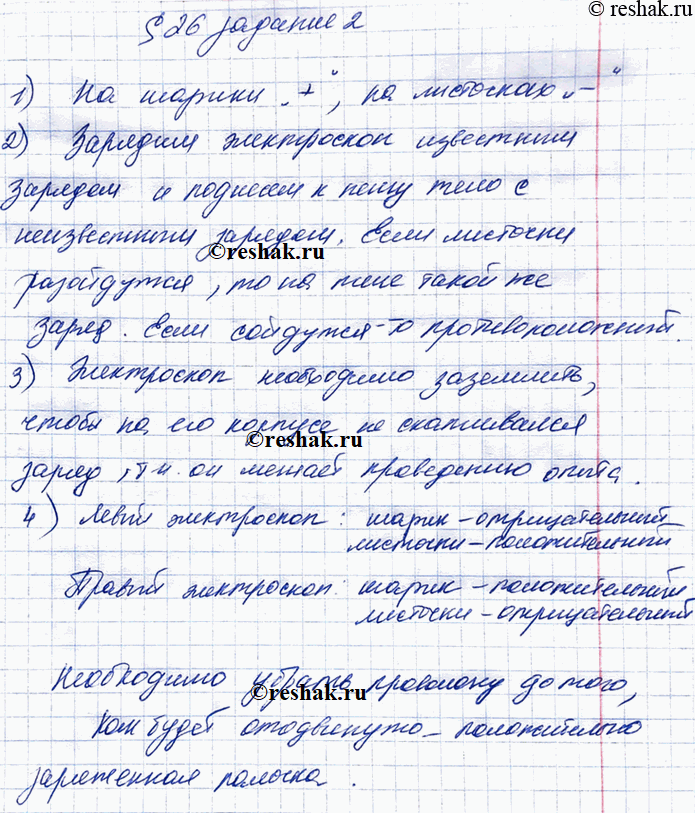 © reshak.ru
§26 задание 2
1) На шарики „+", на листочках „–"
2) Зарядим электроскоп известним
зарядом и поднесем к нему тело с
неизвестним зарядом. Если листочки
©reshak.ru
разойдутся, то на теле такой же
заряд. Если сойдутся-то противоположний.
3) Электроскоп необходимо заземлить,
чтобы на его корпусе не скапливался
©reshak.ru
заряд, т.к. он мешает проведению опыта.
4) Левый электроскоп: шарик-отрицательний
листочки-положительний
Правый электроскоп: шарик-положительний
листочки-отрицательний
Необходимо убрать проволоку до того,
©reshak.ru
как будет отодвинуто-положительно
заряженная палочка.